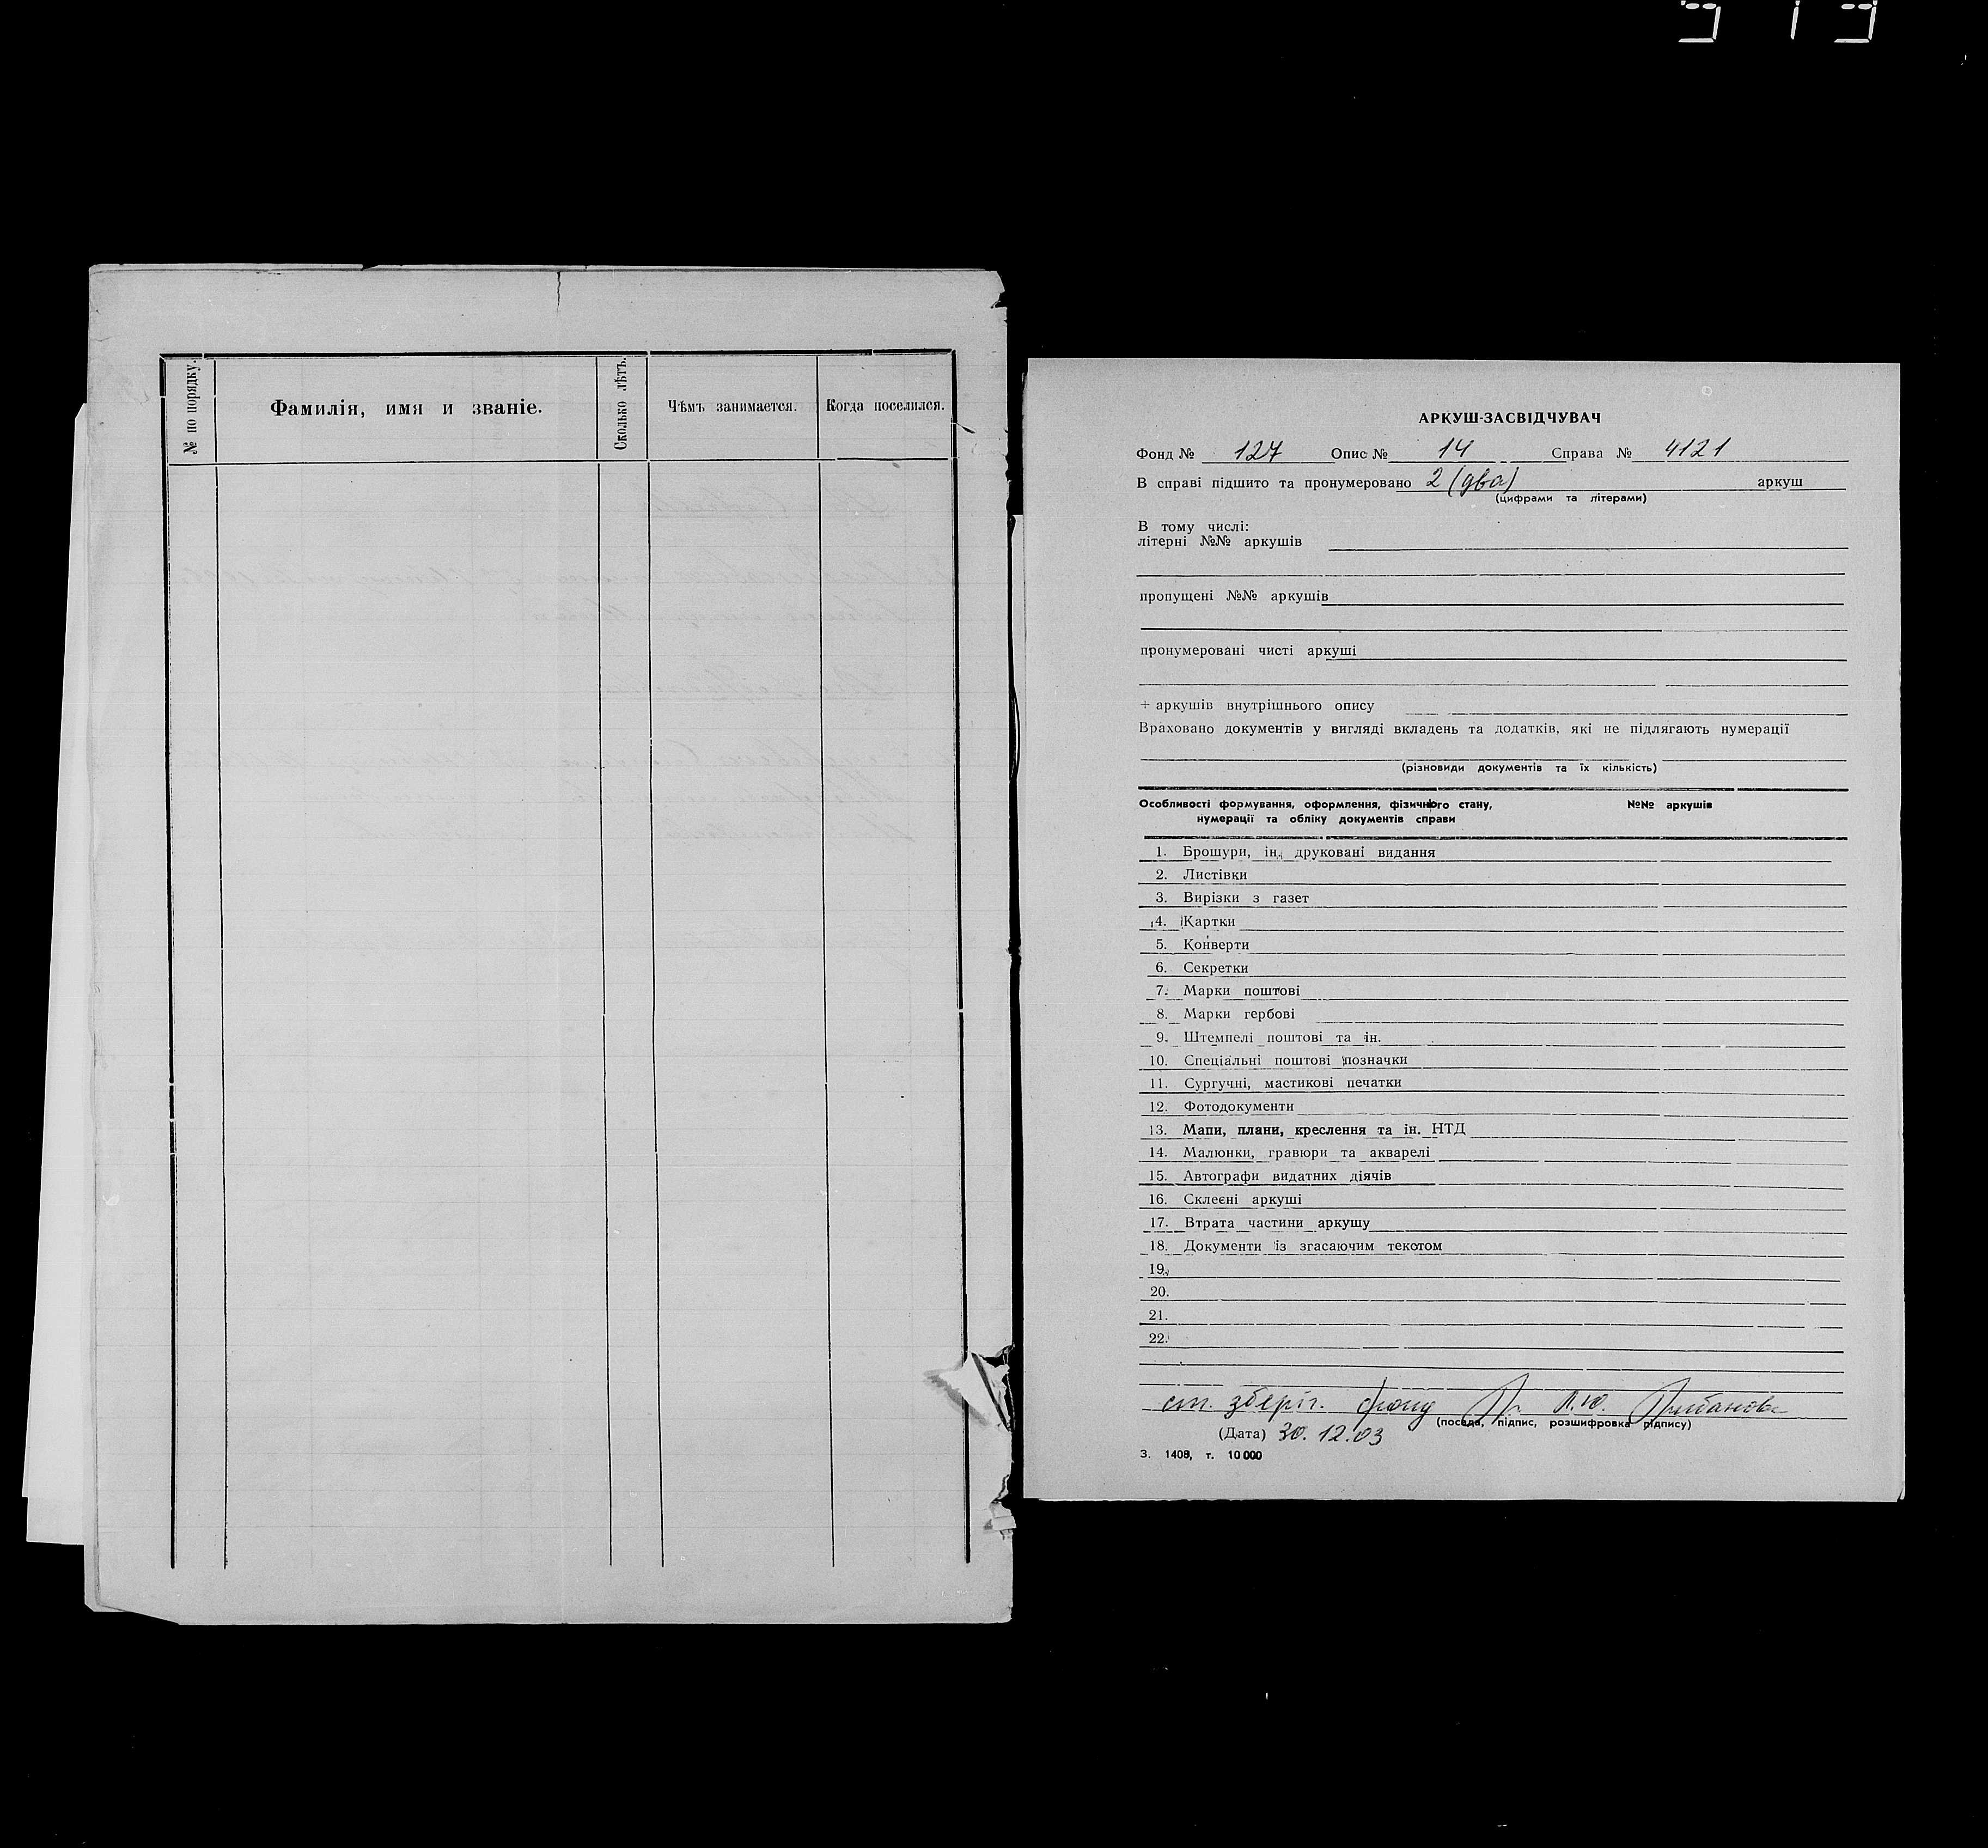 № по порядку.
Фамилія, имя и званіе.
Сколько лѣтъ.
Чѣмъ занимается.
Когда поселился.
АРКУШ-ЗАСВІДЧУВАЧ
Фонд № 127 Опис № 14 Справа № 4121
В справі підшито та пронумеровано 2 (два) аркуш
(цифрами та літерами)
В тому числі:
літерні №№ аркушів
пропущені №№ аркушів
пронумеровані чисті аркуші
+ аркушів внутрішнього опису
Враховано документів у вигляді вкладень та додатків, які не підлягають нумерації
(різновиди документів та їх кількість)
Особливості формування, оформлення, фізичного стану, №№ аркушів
нумерації та обліку документів справи
1. Брошури, ін. друковані видання
2. Листівки
3. Вирізки з газет
4. Картки
5. Конверти
6. Секретки
7. Марки поштові
8. Марки гербові
9. Штемпелі поштові та ін.
10. Спеціальні поштові позначки
11. Сургучні, мастикові печатки
12. Фотодокументи
13. Мапи, плани, креслення та ін. НТД
14. Малюнки, гравюри та акварелі
15. Автографи видатних діячів
16. Склеєні аркуші
17. Втрата частини аркушу
18. Документи із згасаючим текстом
19.
20.
21.
22.
ст. зберіг. фонд
(посада, підпис, розшифровка підпису)
(Дата) 30.12.03
З. 1408, т. 10 000